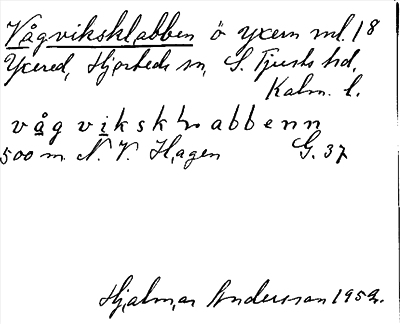 Vågviksklabben ö Yxern ml. 18
Yxered, Hjorteds sn, S. Tjusts hd,
Kalm. l.
vågviksklabbenn
500 m N. V. Hagen G. 37
Hjalmar Andersson 1952.